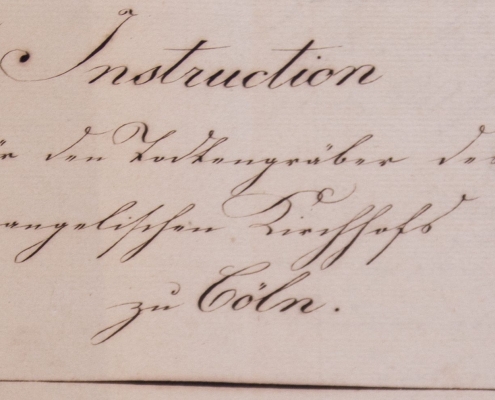 Instruction
ür den Todtengräber des
angelischen Kirchhofs
zu Cöln.